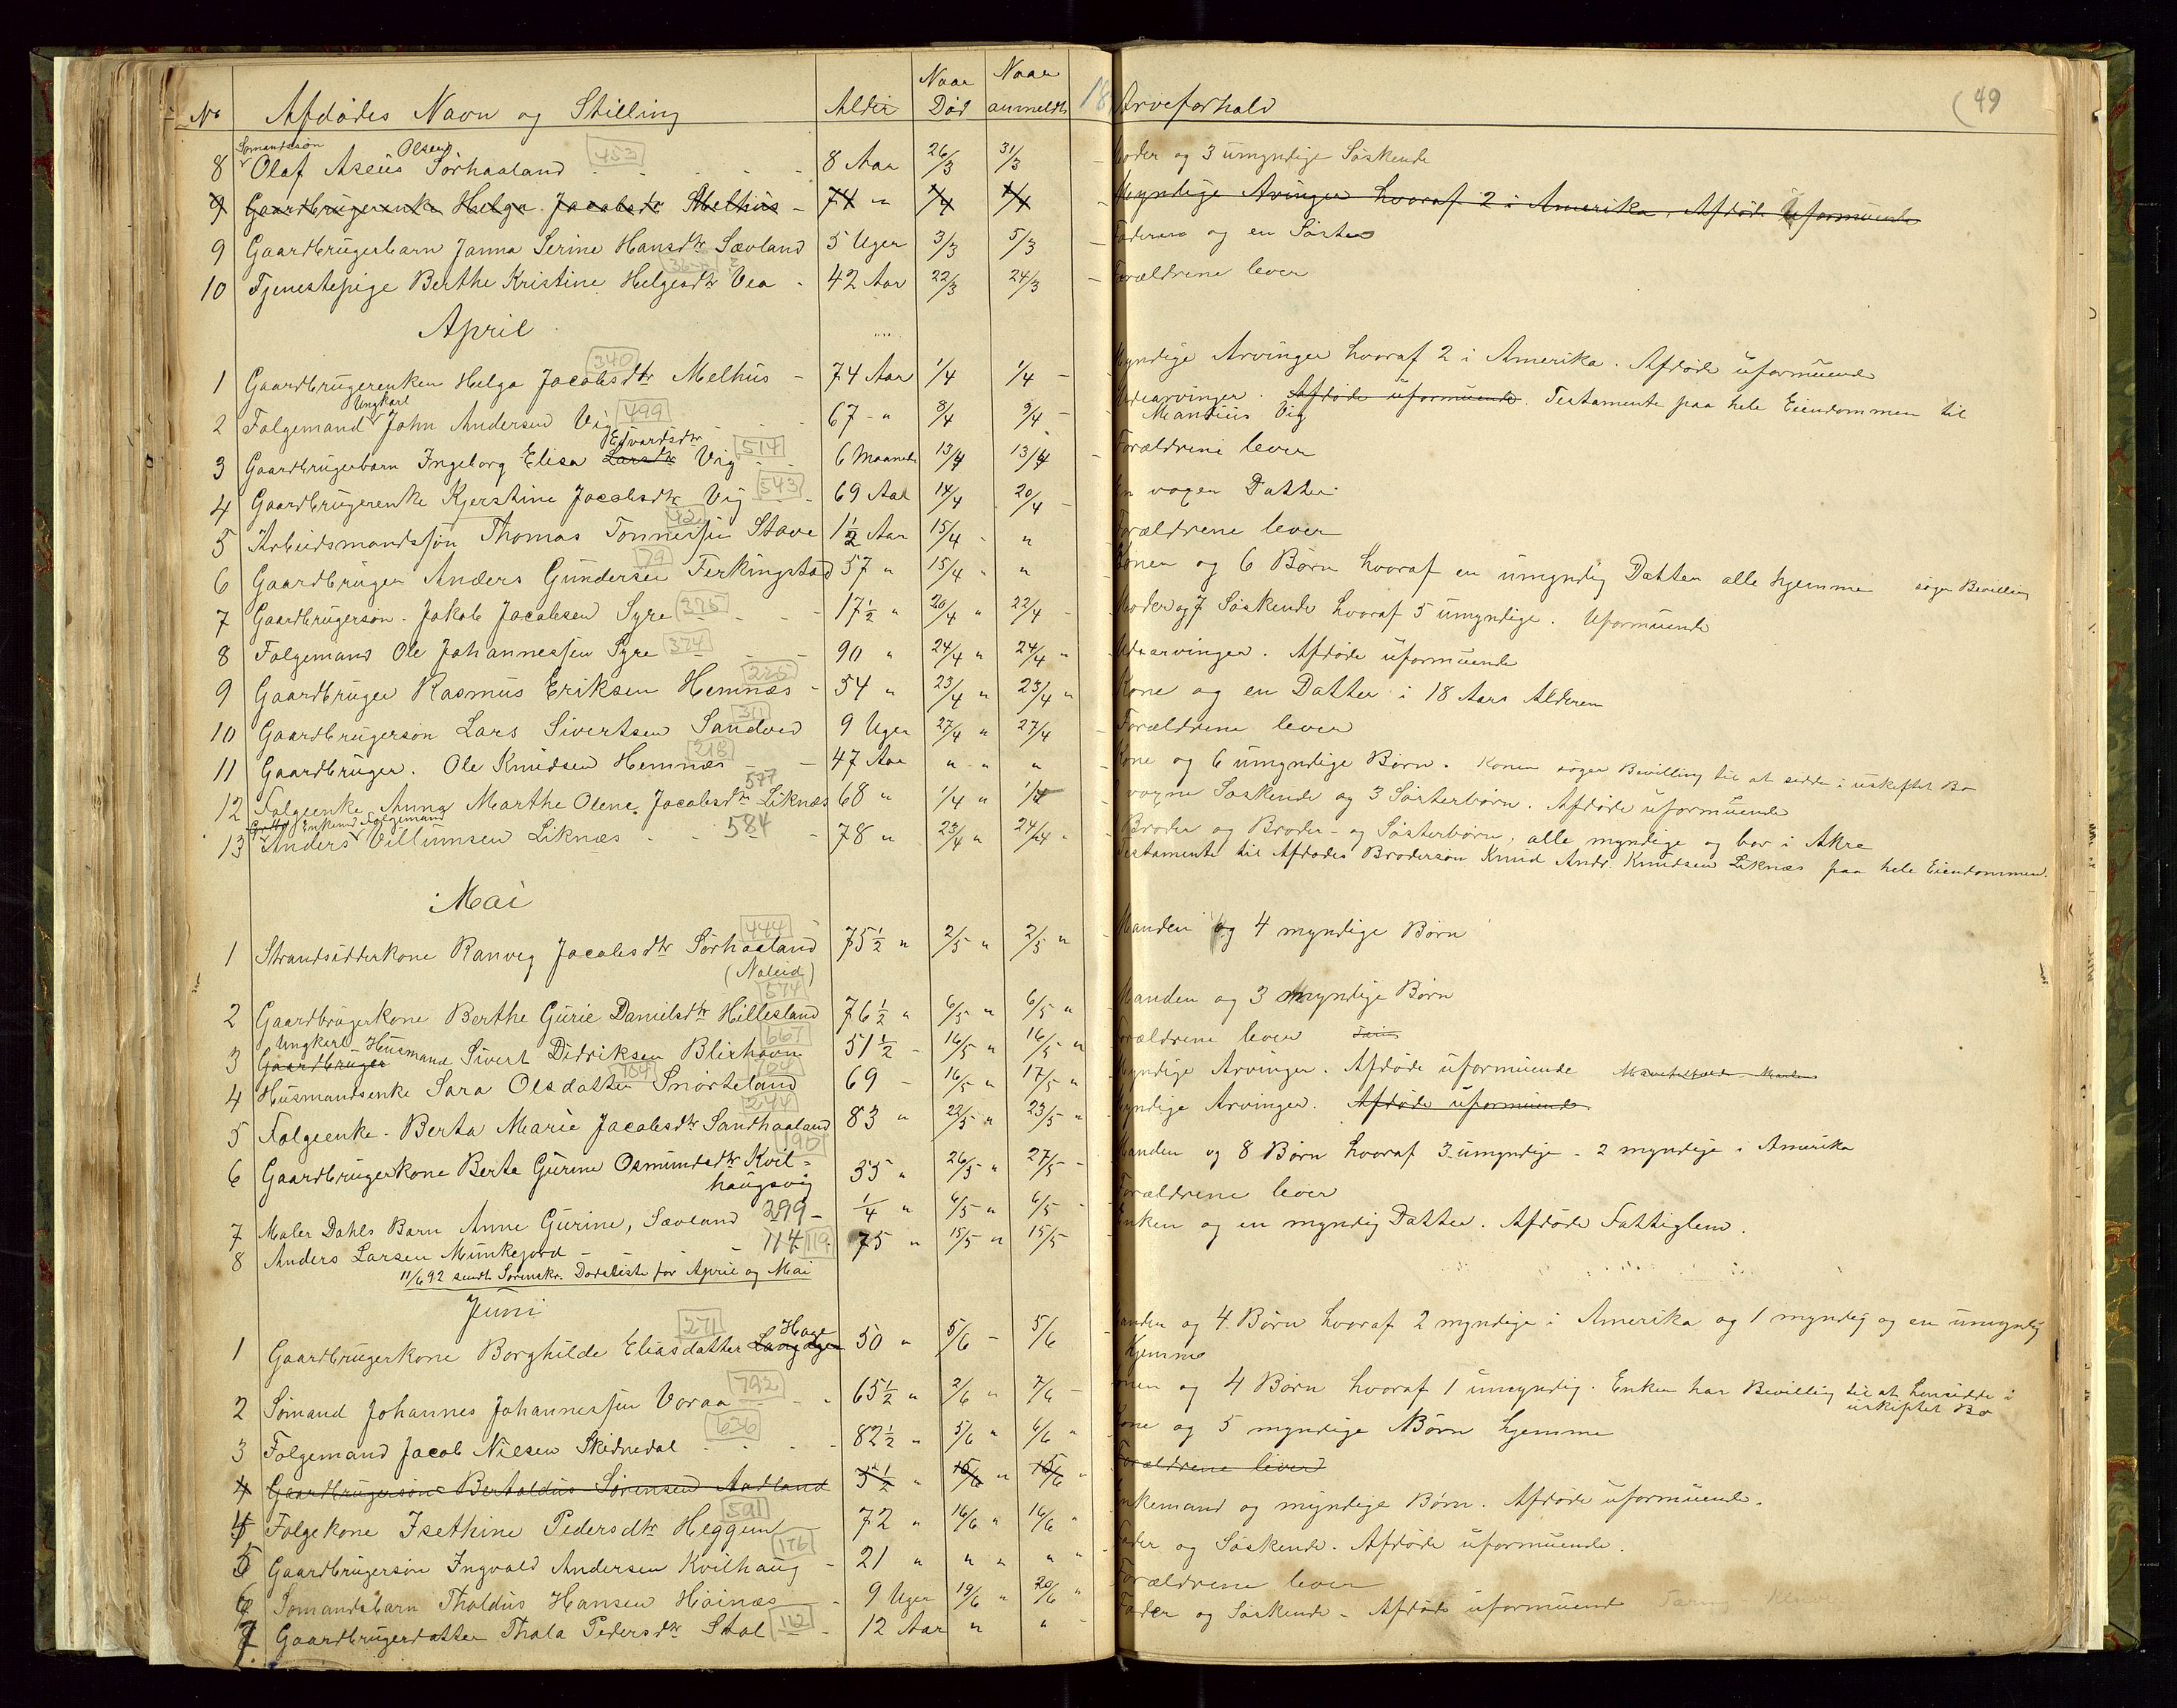 No Afdødes Navn og Stilling Alder Naar Død Naar anmeldt 18 Arveforhold (49
8 Sømandssøn Olaf Aseüs Olsen Sørhaaland 453 8 Aar 26/3 31/3 Moder og 3 umyndige Søskende
9 Gaardbrugerenke Helga Jacobsdtr Melhüs 74 " 1/4 1/4 Myndige Avinger hvoraf 2 i Amerika, Afdøde üformüende
9 Gaardbrugerbarn Janna Serine Hansdtr Sævland 5 Uger 3/3 5/3 Faderen og en Søster
10 Tjenestepige Berthe Kristine Helgesdtr Vea 42 Aar 22/3 24/3 Forældrene lever
April
1 Gaardbrugerenken Helga Jacobsdtr Melhüs 340 74 Aar 1/4 1/4 Myndige Arvinger hvoraf 2 i Amerika. Afdøde üformüende
2 Følgemand Ungkarl John Andersen Vig 499 67 " 8/4 9/4 Udearvinger. Afdøde üformüende. Testamente paa hele Eiendommen til
Mandiüs Vig
3 Gaardbrugerbarn Ingeborg Elisa Larsdtr Edvardsdtr Vig 514 6 Maaneder 13/4 13/4 Forældrene lever
4 Gaardbrugerenke Kjerstine Jacobsdtr Vig 543 69 Aar 14/4 20/4 En voxen Datter
5 Arbeidsmandssøn Thomas Tønnessen Stave 42 1½ Aar 15/4 " Forældrene lever
6 Gaardbruger Anders Gündersen Ferkingstad 79 57 " 15/4 " " Konen og 6 Børn hvoraf en ümyndig Datter alle hjemme søger Bevilling
7 Gaardbrugersøn Jakob Jacobsen Syre 325 17½ " 20/4 " 22/4 Moder og 7 Søskende hvoraf 5 ümyndige. Uformüende
8 Følgemand Ole Johannessen Syre 374 90 " 24/4 " 24/4 " Udearvinger. Afdøde üformüende
9 Gaardbruger Rasmüs Eriksen Hemnæs 225 54 " 23/4 " 23/4 " Kone og en Datter i 18 Aars Alderen
10 Gaardbrugersøn Lars Sivertsen Sandved 311 9 Uger 27/4 " 27/4 Forældrene lever
11 Gaardbruger. Ole Knüdsen Hemnæs 218 47 Aar " " " Kone og 6 ümyndige Børn. Konen søger Bevilling til at sidde i uskiftet Bo
12 Følgeenke Anna Marthe Olene Jacobsdtr Liknæs 577 68 " 1/4 " 1/4 voxne Søskende og 3 Søsterbørn. Afdøde üformüende
13 Enkemd Følgemand Anders Villumsen Liknæs 584 78 " 23/4 " 24/4 " Broder og Broder- og Søsterbørn, alle myndige og bor i Akre
Testamente til Afdødes Brodersøn Knüd Andr. Knüdsen Liknæs paa hele Eiendommen.
Mai
1 Strandsidderkone Ranveg Jacobsdtr Sørhaaland 444 75½ " 2/5 " 2/5 " Manden og 4 myndige Børn
(Naleid)
2 Gaardbrugerkone Berthe Gürie Danielsdtr Hillesland 574 76½ " 6/5 " 6/5 " Manden og 3 myndige Børn
3 Gaardbruger Ungkarl Husmand Sivert Didriksen Blixhavn 667 51½ - 16/5 " 16/5 " Forældrene lever
4 Hüsmandsenke Sara Olsdatter Snørteland 704 704 69 - 16/5 " 17/5 " Myndige Arvinger. Afdøde üformüende
5 Følgeenke. Berta Marie Jacobsdtr Sandhaaland 244 83 " 22/5 " 23/5 " Myndige Arvinger. Afdøde üformüende.
6 Gaardbrugerkone Berta Gürine Osmündsdtr Kvil- 190 55 " 26/5 " 27/5 - Manden og 8 Børn hvoraf 3 ümyndige - 2 myndige i Amerika
haugsvig
7 Maler Dahls Barn Anne Gürine, Sævland 299 ¼ " 6/5 " 6/5 Forældrene lever
8 Anders Larsen Münkejord 114 119 75 " 15/5 " 15/5 Enken og en myndig Datter. Afdøde Fattiglem.
11/6 92 sendt Sorenskr. Dødsliste for April og Mai
Juni
1 Gaardbrugerkone Borghilde Eliasdatter Langåger Hage 271 50 " 5/6 - 5/6 Manden og 4 Børn hvoraf 2 myndige i Amerika og 1 myndig og en ümyndig
hjemme
2 Sømand Johannes Johannessen Voraa 792 65½ " 2/6 " 7/6 - Konen og 4 Børn hvoraf 1 ümyndig. Enken har Bevilling til at hensidde i
uskiftet Bo
3 Følgemand Jacob Nilsen Skidnedal 636 82½ " 5/6 " 6/6 " Kone og 5 myndige Børn hjemme
4 Gaardbrugersøn Bertoldüs Sørensen Aadland 5½ 15/6 " 15/6 " Forældrene lever
4 Følgekone Isethine Pedersdtr Heggem 591 72 " 16/6 " 16/6 " Enkemand og myndige Børn. Afdøde üformüende.
5 Gaardbrugersøn Ingvald Andersen Kvilhaug 176 21 " " " " " Fader og Søskende. Afdøde üformüende.
6 Sømandsbarn Tholdüs Hansen Høinæs 9 Uger 19/6 " 20/6 " Forældrene lever
7 Gaardbrugerdatter Thala Pedersdtr Stol 112 12 Aar " " - Fader og Søskende - Afdøde üformüende